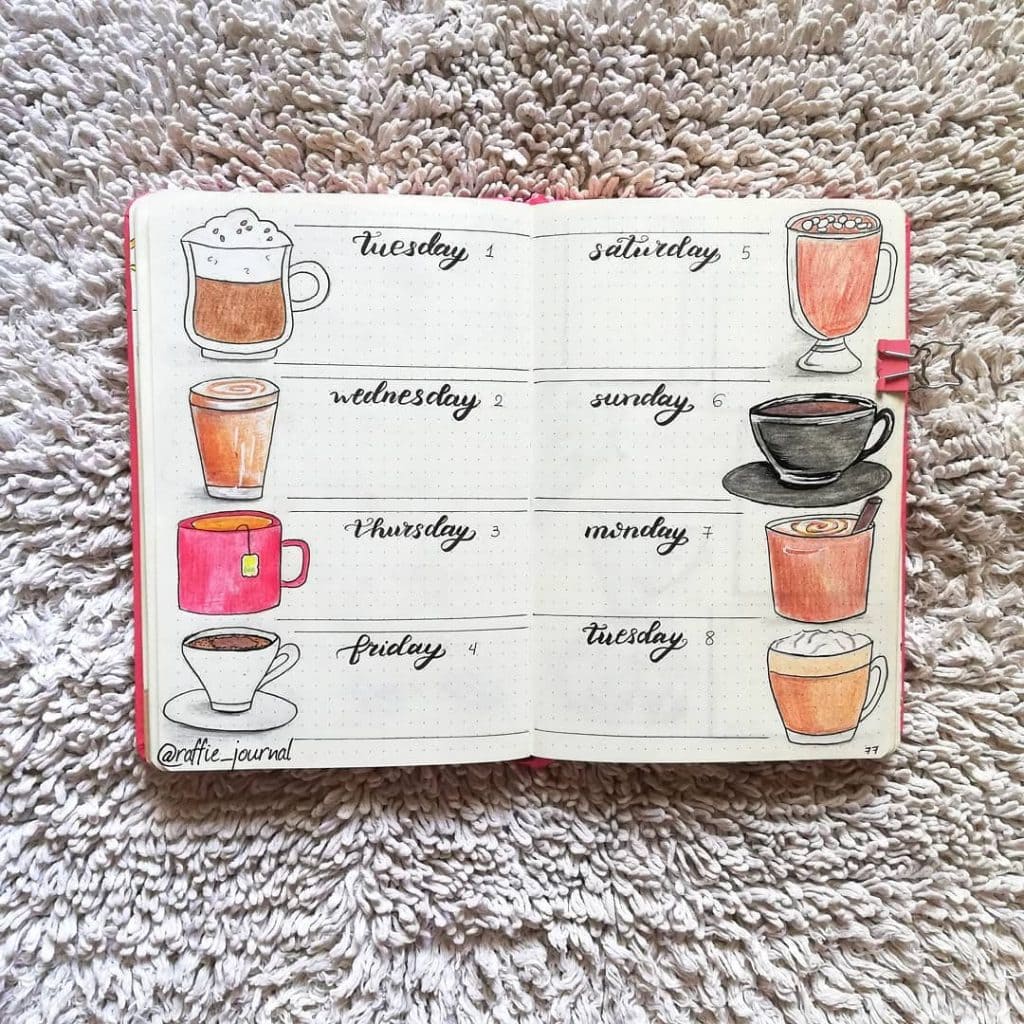 tuesday 1
wednesday 2
thursday 3
friday 4
@raffie_journal
saturday 5
sunday 6
monday 7
tuesday 8
77